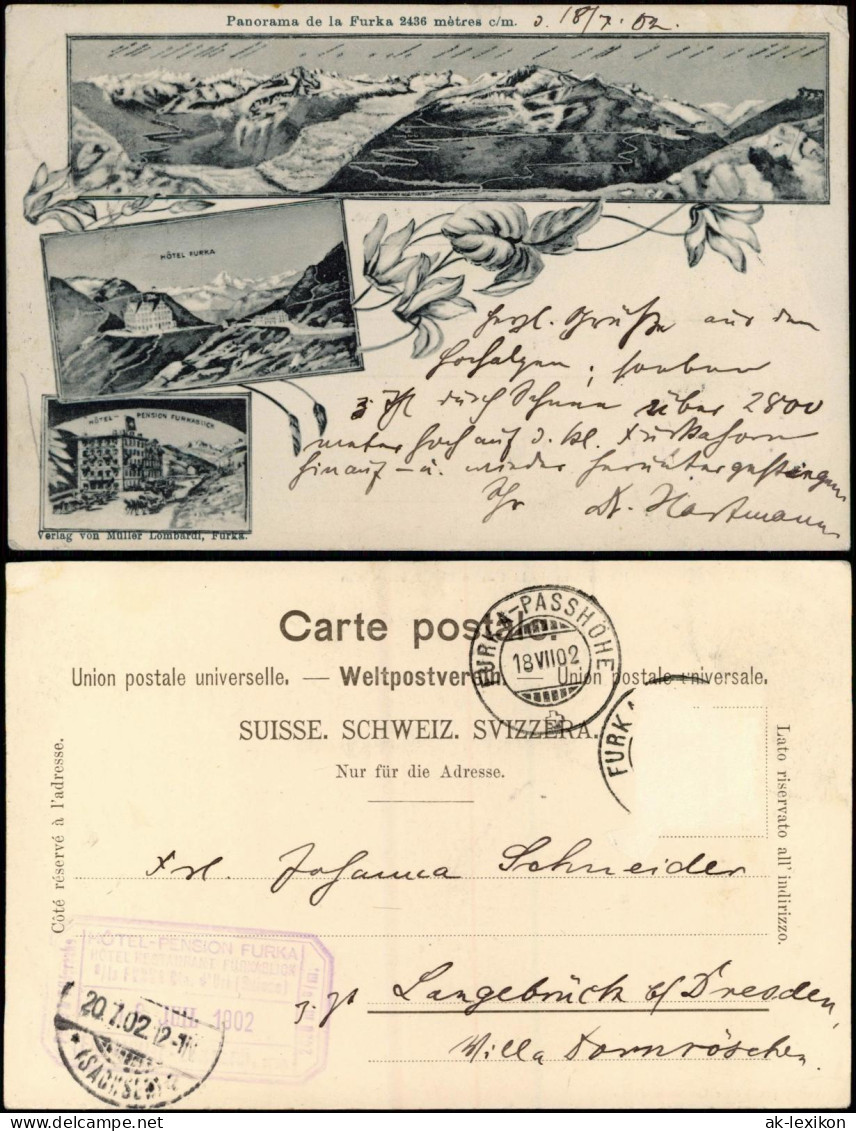 Panorama de la Furka 2436 mètres c/m. d. 18/7. 02.
HÔTEL FURKA
HÔTEL - PENSION FURKABLICK
Verlag von Müller Lombardi, Furka.
Herzl. Grüße aus den
Hochalpen; soeben
z. Zt durch Schnee über 2800
meter hoch auf d. kl. Furkahorn
hinauf - u. wieder heruntergestiegen
Ihr Dr. Hartmann
Carte postale.
Union postale universelle. — Weltpostverein — Union postale universale.
SUISSE. SCHWEIZ. SVIZZERA.
Nur für die Adresse.
Côté réservé à l'adresse.
Lato riservato all' indirizzo.
FURKA-PASSHÖHE
18 VII 02
FURKA
Frl. Johanna Schneider
z. Zt Langebrück b/ Dresden,
Villa Dornröschen.
HÔTEL-PENSION FURKA
HÔTEL RESTAURANT FURKABLICK
JUIL 1902
20.7.02.12-1N
(SACHSEN)
ak-lexikon